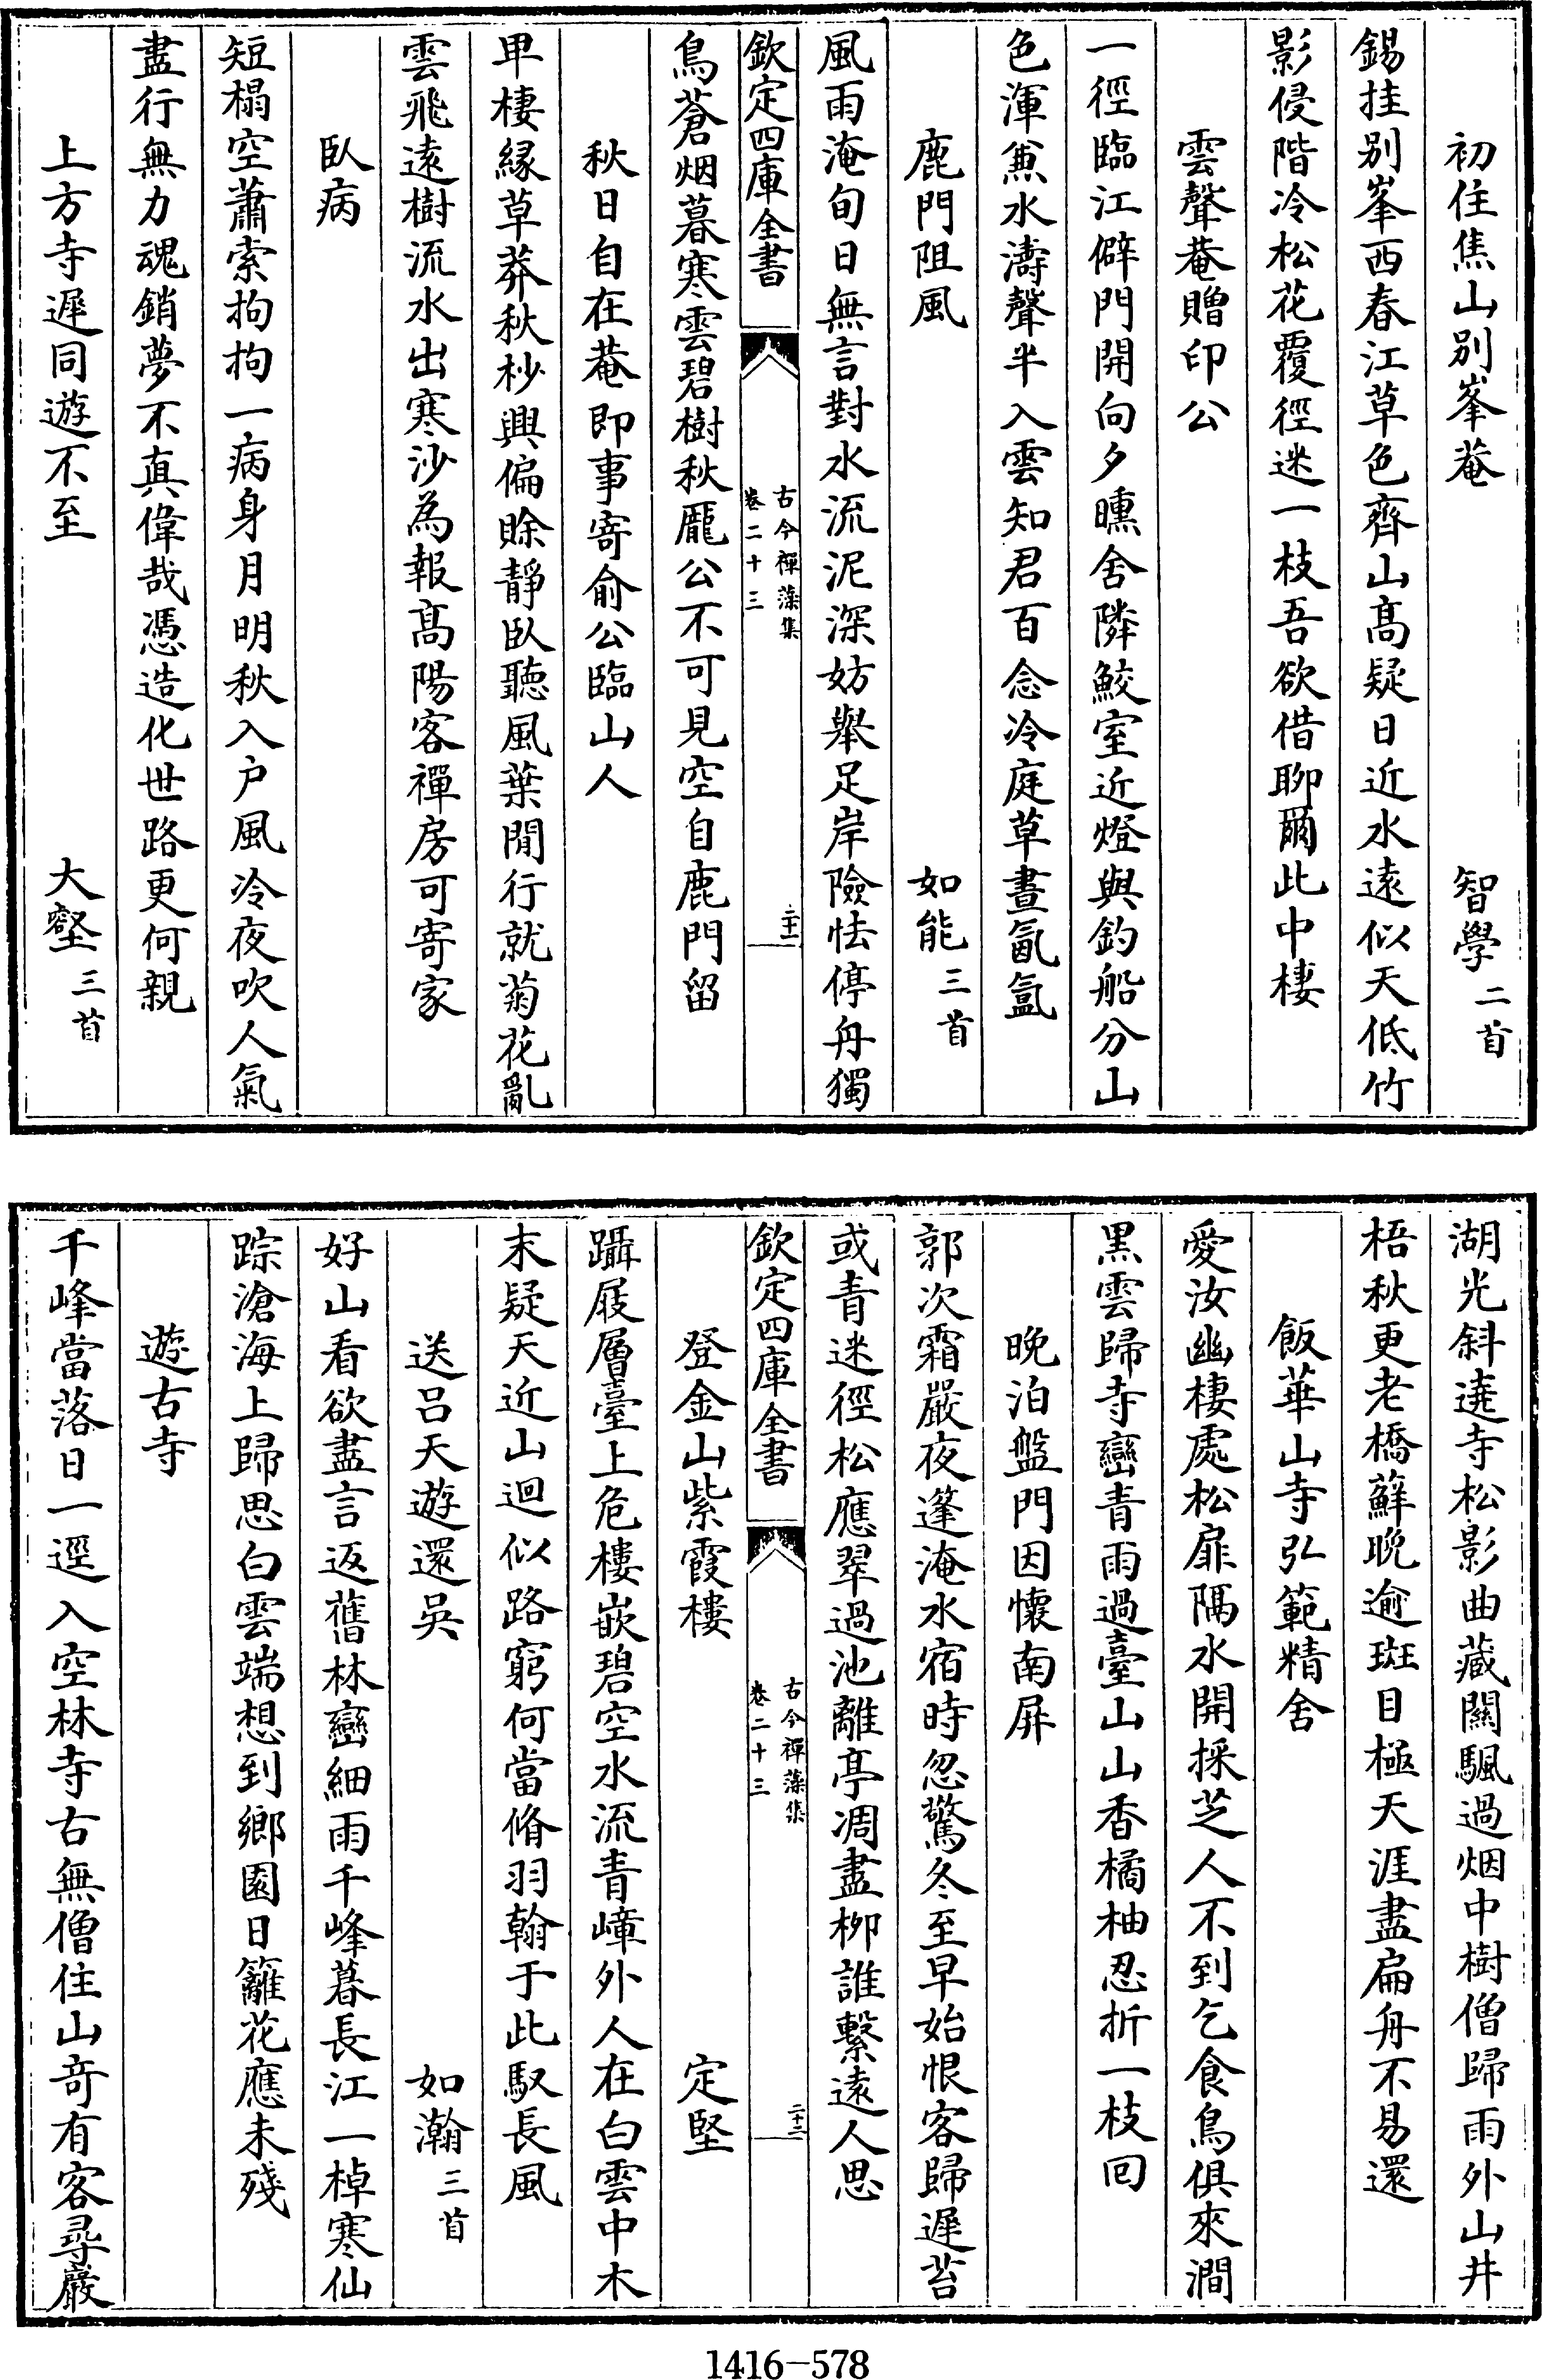 初住焦山別峯菴 智學二首
錫挂别峯西春江草色齊山髙疑日近水逺似天低竹
影侵階冷松花覆徑迷一枝吾欲借聊爾此中棲
雲聲菴贈印公
一徑臨江僻門開向夕曛舍隣鮫室近燈與釣船分山
色渾兼水濤聲半入雲知君百念冷庭草晝氤氲
鹿門阻風 如能三首
風雨淹旬日無言對水流泥深妨舉足岸險怯停舟獨
欽定四庫全書 古今禪藻集 卷二十三 二十一
鳥蒼烟暮寒雲碧樹秋龎公不可見空自鹿門留
秋日自在菴即事寄俞公臨山人
甲棲緣草莽秋杪興偏賒靜臥聽風葉閒行就菊花亂
雲飛逺樹流水出寒沙為報髙陽客禪房可寄家
臥病
短榻空蕭索拘拘一病身月明秋入户風冷夜吹人氣
盡行無力魂銷夢不真偉哉憑造化世路更何親
上方寺遲同遊不至 大壑三首
湖光斜遶寺松影曲藏關颿過烟中樹僧歸雨外山井
梧秋更老橋蘚晚逾斑目極天涯盡扁舟不易還
飯華山寺弘範精舍
愛汝幽棲處松扉隔水開採芝人不到乞食鳥俱來澗
黒雲歸寺巒青雨過臺山山香橘柚忍折一枝回
晚泊盤門因懐南屏
郭次霜嚴夜篷淹水宿時忽驚冬至早始恨客歸遲苔
或青迷徑松應翠過池離亭凋盡栁誰繫逺人思
欽定四庫全書 古今禪藻集 卷二十三 二十二
登金山紫霞樓 定堅
躡屐層臺上危樓嵌碧空水流青嶂外人在白雲中木
末疑天近山迴似路窮何當脩羽翰于此馭長風
送吕天遊還吳 如瀚三首
好山看欲盡言返舊林巒細雨千峰暮長江一棹寒仙
踪滄海上歸思白雲端想到鄉園日籬花應未殘
遊古寺
千峰當落日一逕入空林寺古無僧住山奇有客尋巖
1416-578